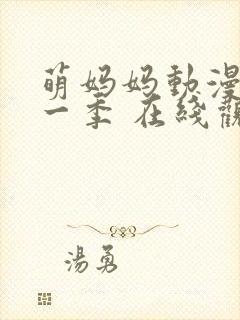 萌妈妈動漫
一季 在綫觀
湯勇